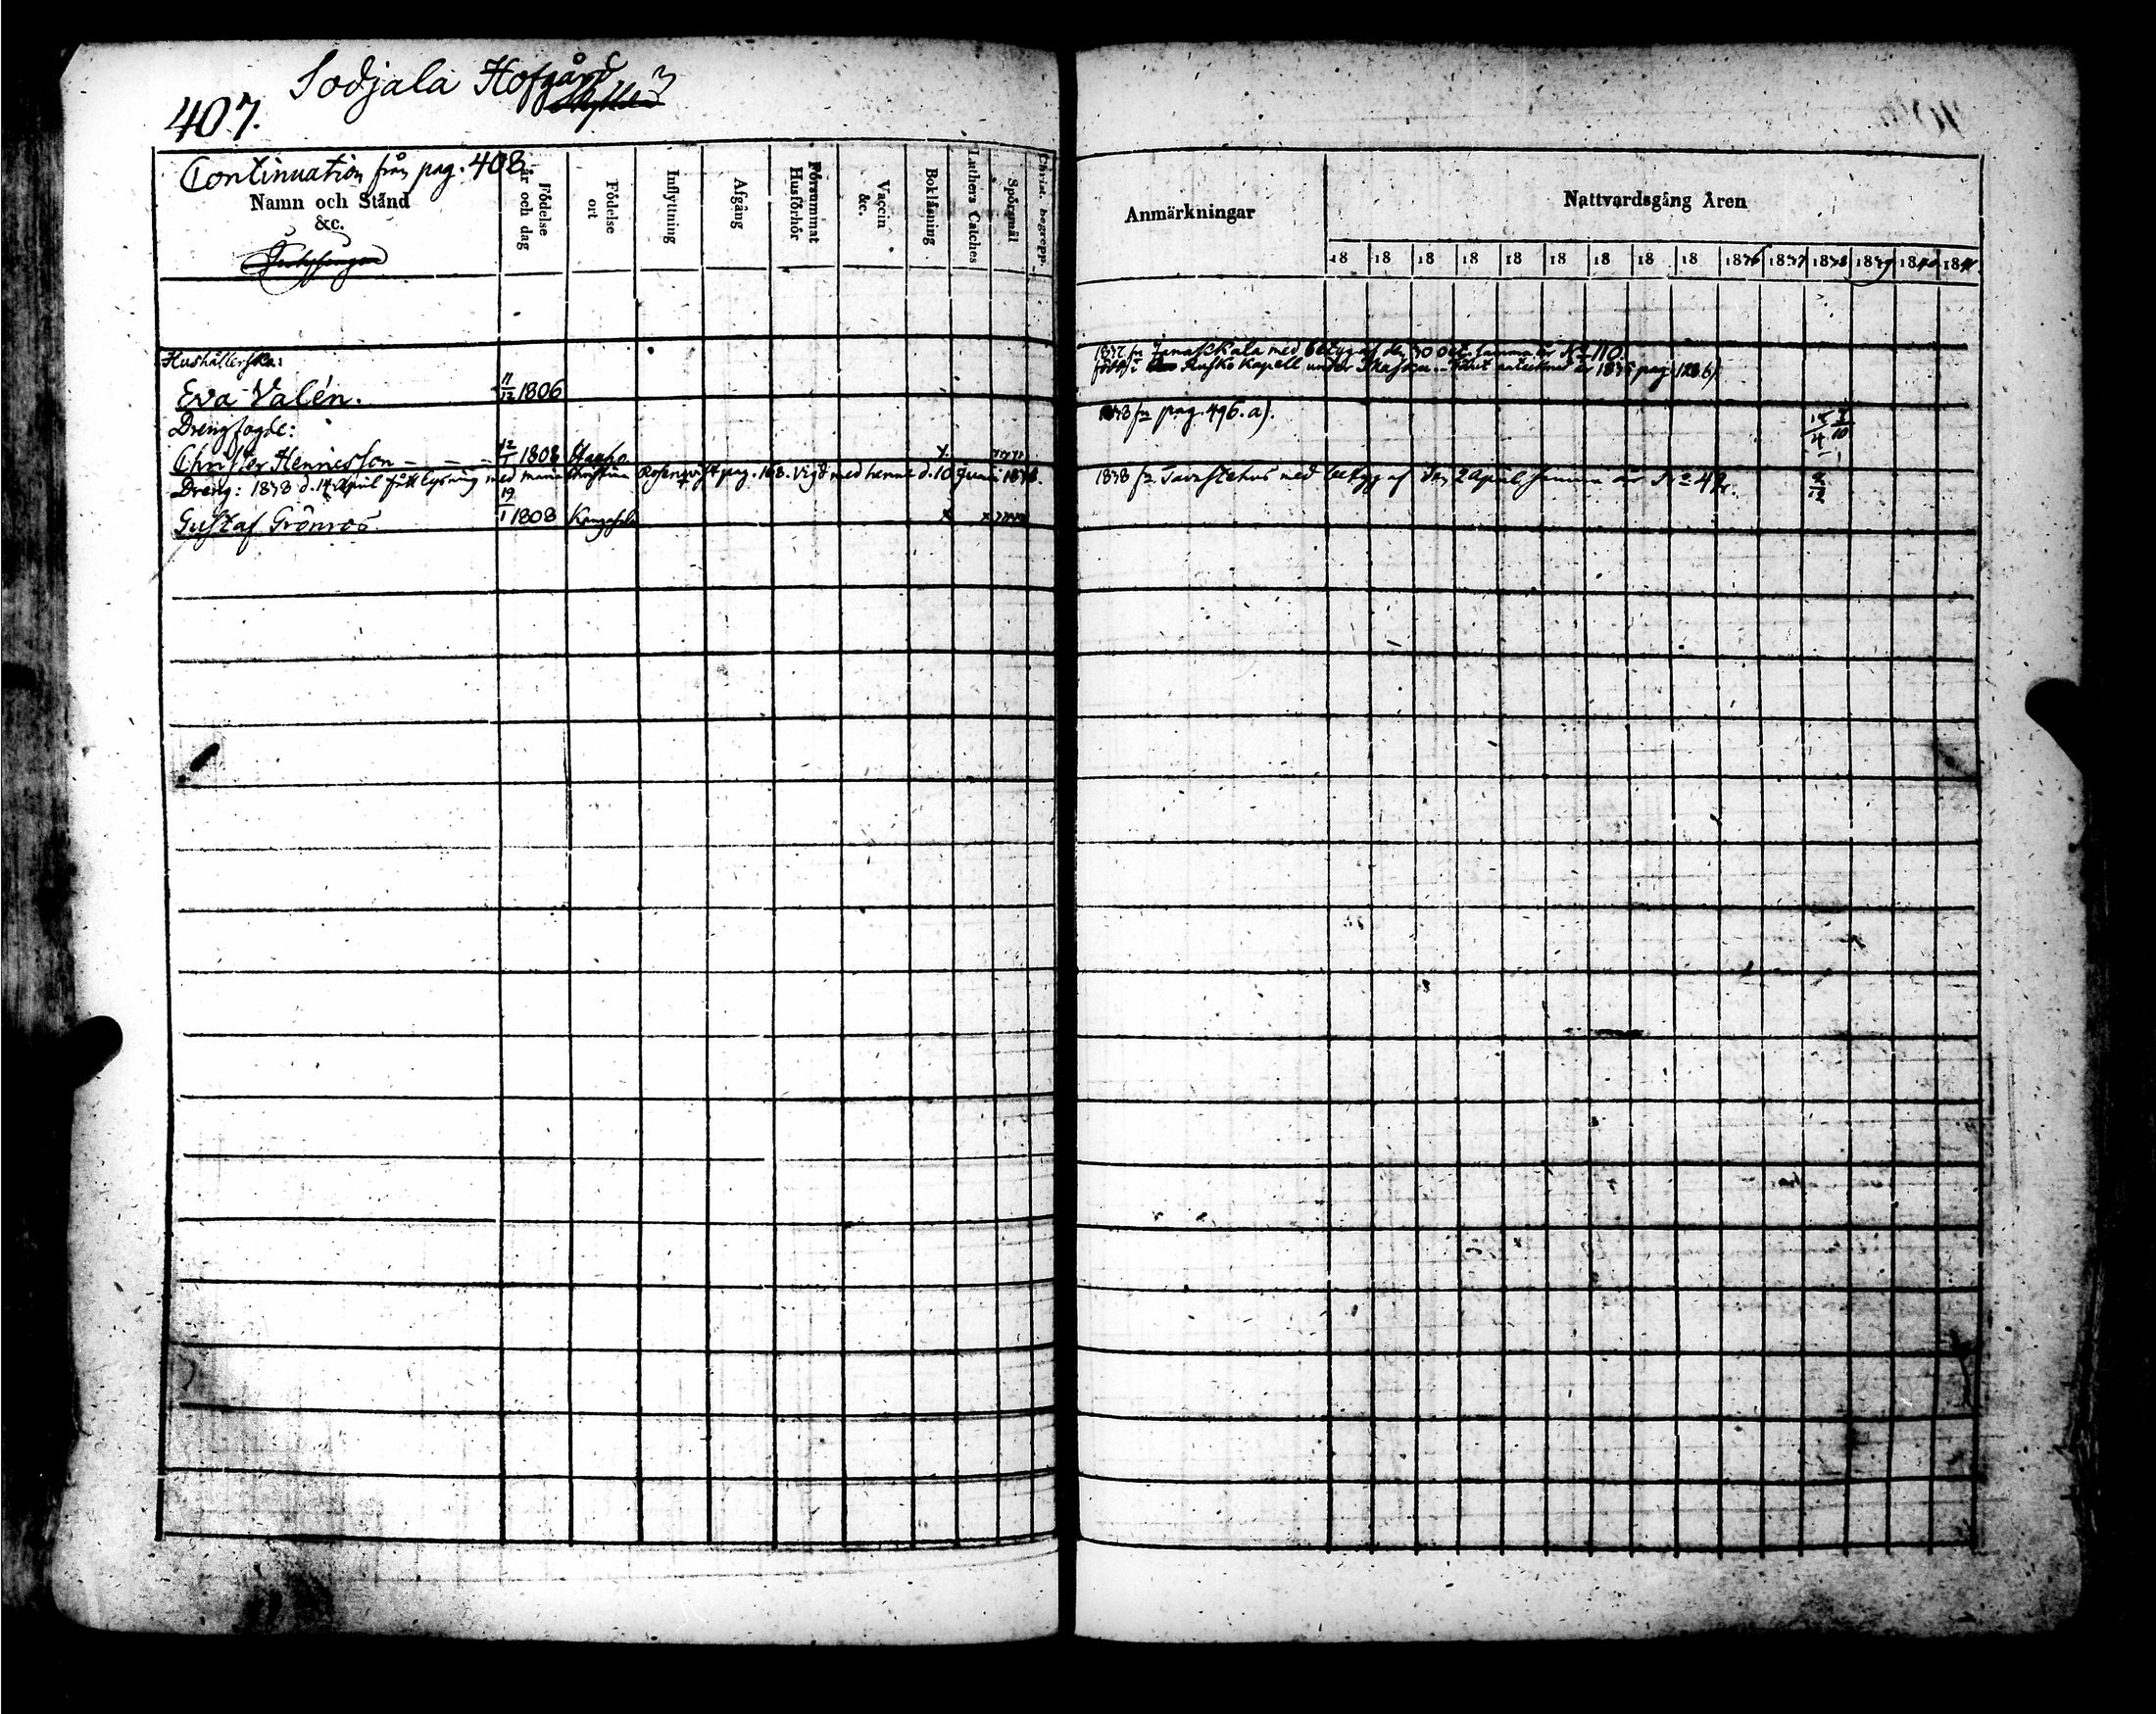 Sodjala Hofgård
407.
Continuation från pag. 408.
Namn och Stånd
&c.
Födelse
år och dag
Födelse
ort
Inflyttning
Afgång
Försummat
Husförhör
Vaccin
&c.
Bokläsning
Luthers Catches
Spörsmål
Christ. begrepp.
Hushållerska:
Eva Valén. 11/12 1806
Drengfogde:
Christer Hennesson - - - 12/1 1808 x
Dreng: 1838 d. 14 April fått lysning med Christina Rosenqvist pag. 168. Vigd med henne d. 10 Junii 1838.
Gustaf Grönros 19/1 1808 x
Anmärkningar
Nattvardsgång Åren
18 18 18 18 18 18 18 18 18 1836 1837 1838 1839 1840 1841
Janakkala med betyg af den 30 Oct. samma år No 110.
född i Rusko Kapell under
1838 fr pag. 496. a).
1838 fr Tavastehus med betyg af den 2 April samma år No 42.